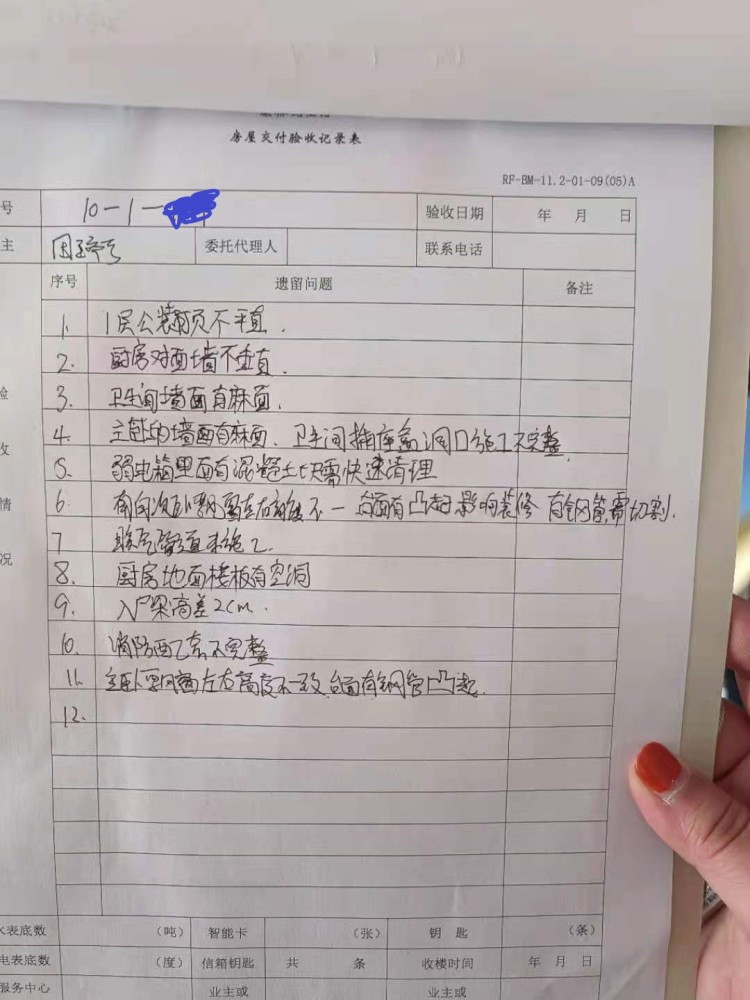 房屋交付验收记录表
RF-BM-11.2-01-09(05)A
号 10-1- 验收日期 年 月 日
主 委托代理人 联系电话
序号 遗留问题 备注
1. 1层公装顶不平直.
2. 厨房对面墙不垂直.
3. 卫生间墙面有麻面.
4. 主卧的墙面有麻面. 卫生间插座盒洞口施工不完整.
5. 弱电箱里面有混凝土块需快速清理
6. 南向次卧飘窗左右高度不一 台面有凸起 影响装修 有钢管需切割.
7 管道未施工
8. 厨房地面楼板有空洞
9. 入户梁高差2cm.
10. 消防不完整
11. 主卧 窗左右高度不一致 台面有钢管凸起.
12.
验
收
情
况
水表底数 (吨) 智能卡 (张) 钥 匙 (条)
电表底数 (度) 信箱钥匙 共 条 收楼时间 年 月 日
服务中心 业主或 业主或